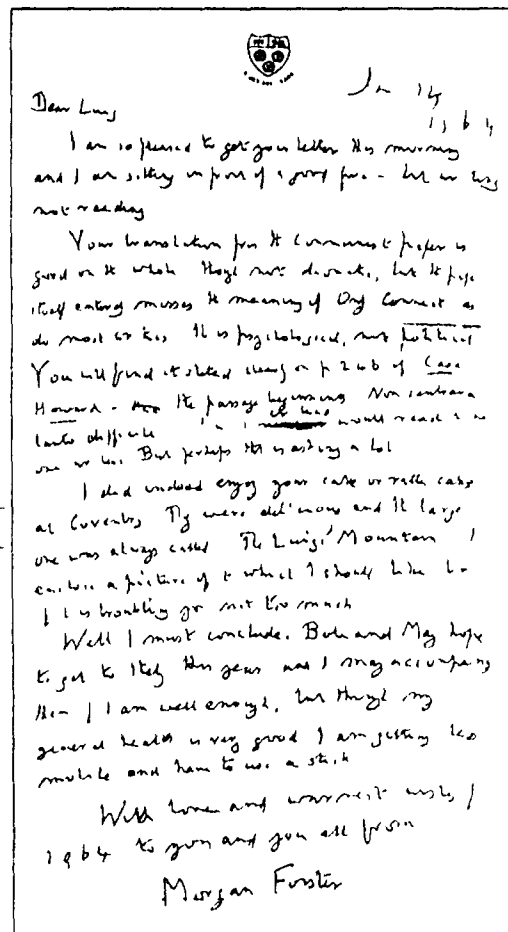 Jan 14
1964
Dear Luigi
I am so pleased to get your letter this morning
and I am sitting in front of a good fire - but
not reading
Your translation from the Communist paper is
good on the whole though not accurate, but the paper
itself entirely misses the meaning of Only Connect as
do most critics It is psychological, not political
You will find it stated clearly on p 246 of Casa
Howard - the passage beginning Non sembrava
tanto difficile would read
one or two But perhaps this is asking a lot
I did indeed enjoy your cake or rather cakes
at Coventry They were delicious and the large
one was always called The Luigi Mountain I
enclose a picture of it which I should like
if it is troubling you not too much
Well I must conclude. Bob and May hope
to get to Italy this year and I may accompany
them if I am well enough, but though my
general health is very good I am getting less
mobile and have to use a stick
With love and warmest wishes for
1964 to you and you all from
Morgan Forster